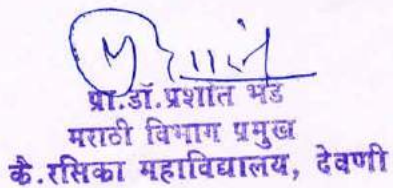 प्रा.डॉ.प्रशांत भंड
मराठी विभाग प्रमुख
कै.रसिका महाविद्यालय, देवणी